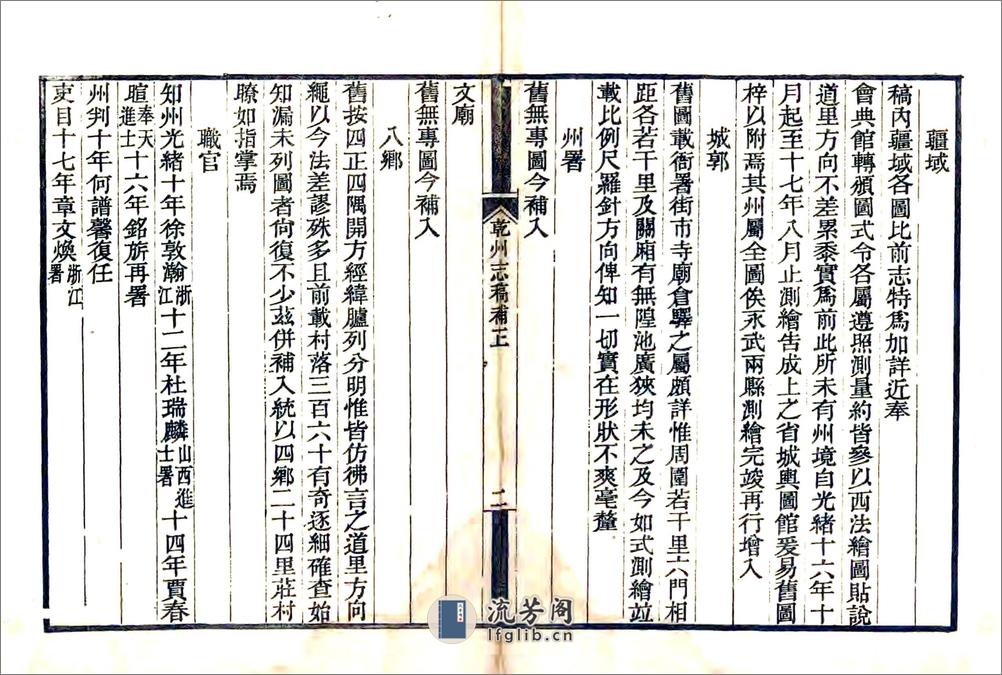 疆域
稿內疆域各圖比前志特爲加詳近奉
會典館轉頒圖式令各屬遵照測量約皆參以西法繪圖貼說
道里方向不差累黍實爲前此所未有州境自光緒十六年十
月起至十七年八月止測繪告成上之省城輿圖館爰易舊圖
梓以附焉其州屬全圖俟永武兩縣測繪完竣再行增入
城郭
舊圖載衙署街市寺廟倉驛之屬頗詳惟周圍若干里六門相
距各若干里及關廂有無隍池廣狹均未之及今如式測繪竝
載比例尺羅針方向俾知一切實在形狀不爽毫釐
州署
舊無專圖今補入
乾州志稿補正
二
文廟
舊無專圖今補入
八鄉
舊按四正四隅開方經緯臚列分明惟皆仿彿言之道里方向
繩以今法差謬殊多且前載村落三百六十有奇逐細確查始
知漏未列圖者尙復不少茲併補入統以四鄉二十四里莊村
瞭如指掌焉
職官
知州光緒十年徐敦瀚浙江十二年杜瑞麟山西進士署十四年賈春
暄奉天進士十六年銘旂再署
州判十年何譜馨復任
吏目十七年章文煥浙江署
流芳阁
lfglib.cn